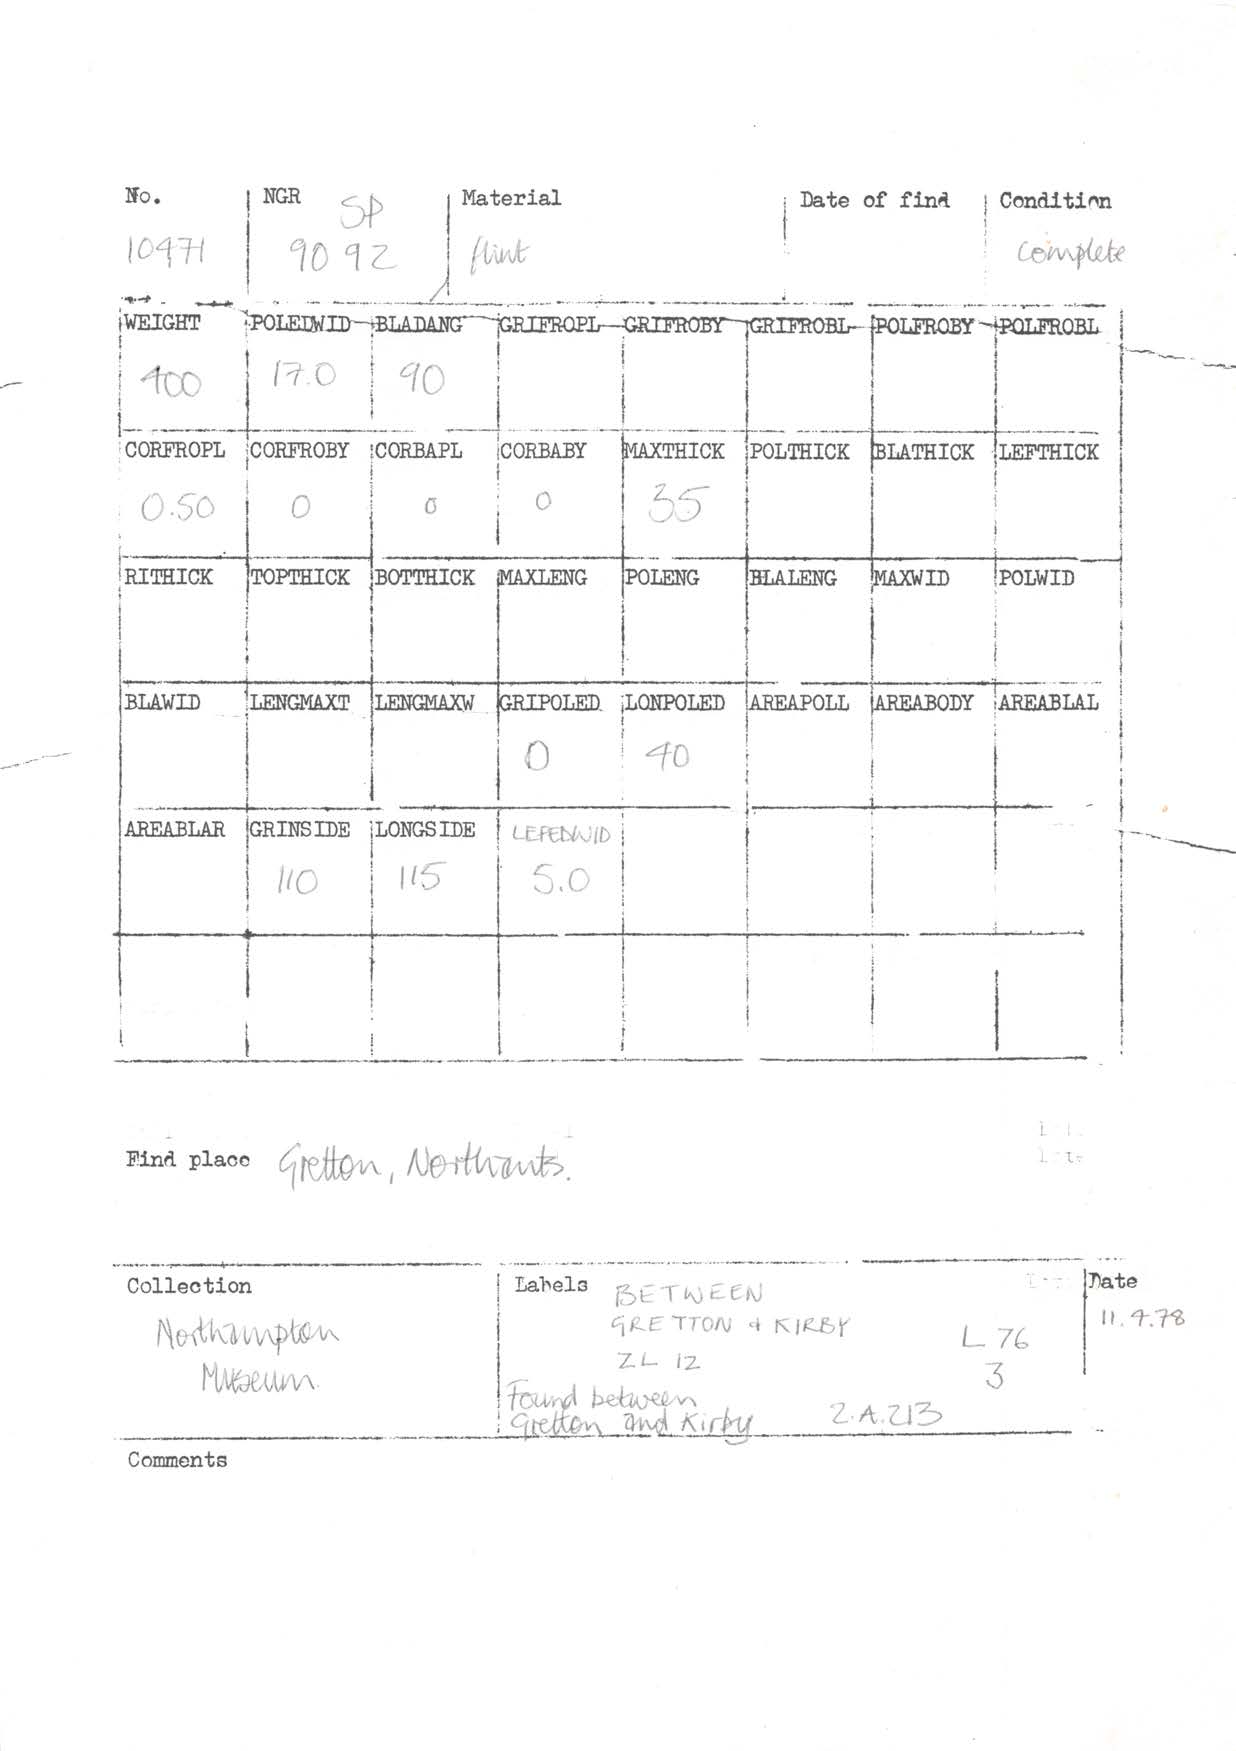 No. NGR SP Material Date of find Condition
10471 90 92 flint complete
WEIGHT POLEDWID BLADANG GRIFROPL GRIFROBY GRIFROBL POLFROBY POLFROBL
400 17.0 90
CORFROPL CORFROBY CORBAPL CORBABY MAXTHICK POLTHICK BLATHICK LEFTHICK
0.50 0 0 0 35
RITHICK TOPTHICK BOTTHICK MAXLENG POLENG BLALENG MAXWID POLWID
BLAWID LENGMAXT LENGMAXW GRIPOLED LONPOLED AREAPOLL AREABODY AREABLAL
0 40
AREABLAR GRINSIDE LONGSIDE LEFEDWID
110 115 5.0
Find place Gretton, Northants.
Collection Labels BETWEEN Date
Northampton GRETTON & KIRBY L 76 11.4.78
Museum. ZL 12 3
Found between
Gretton and Kirby 2.A.213
Comments